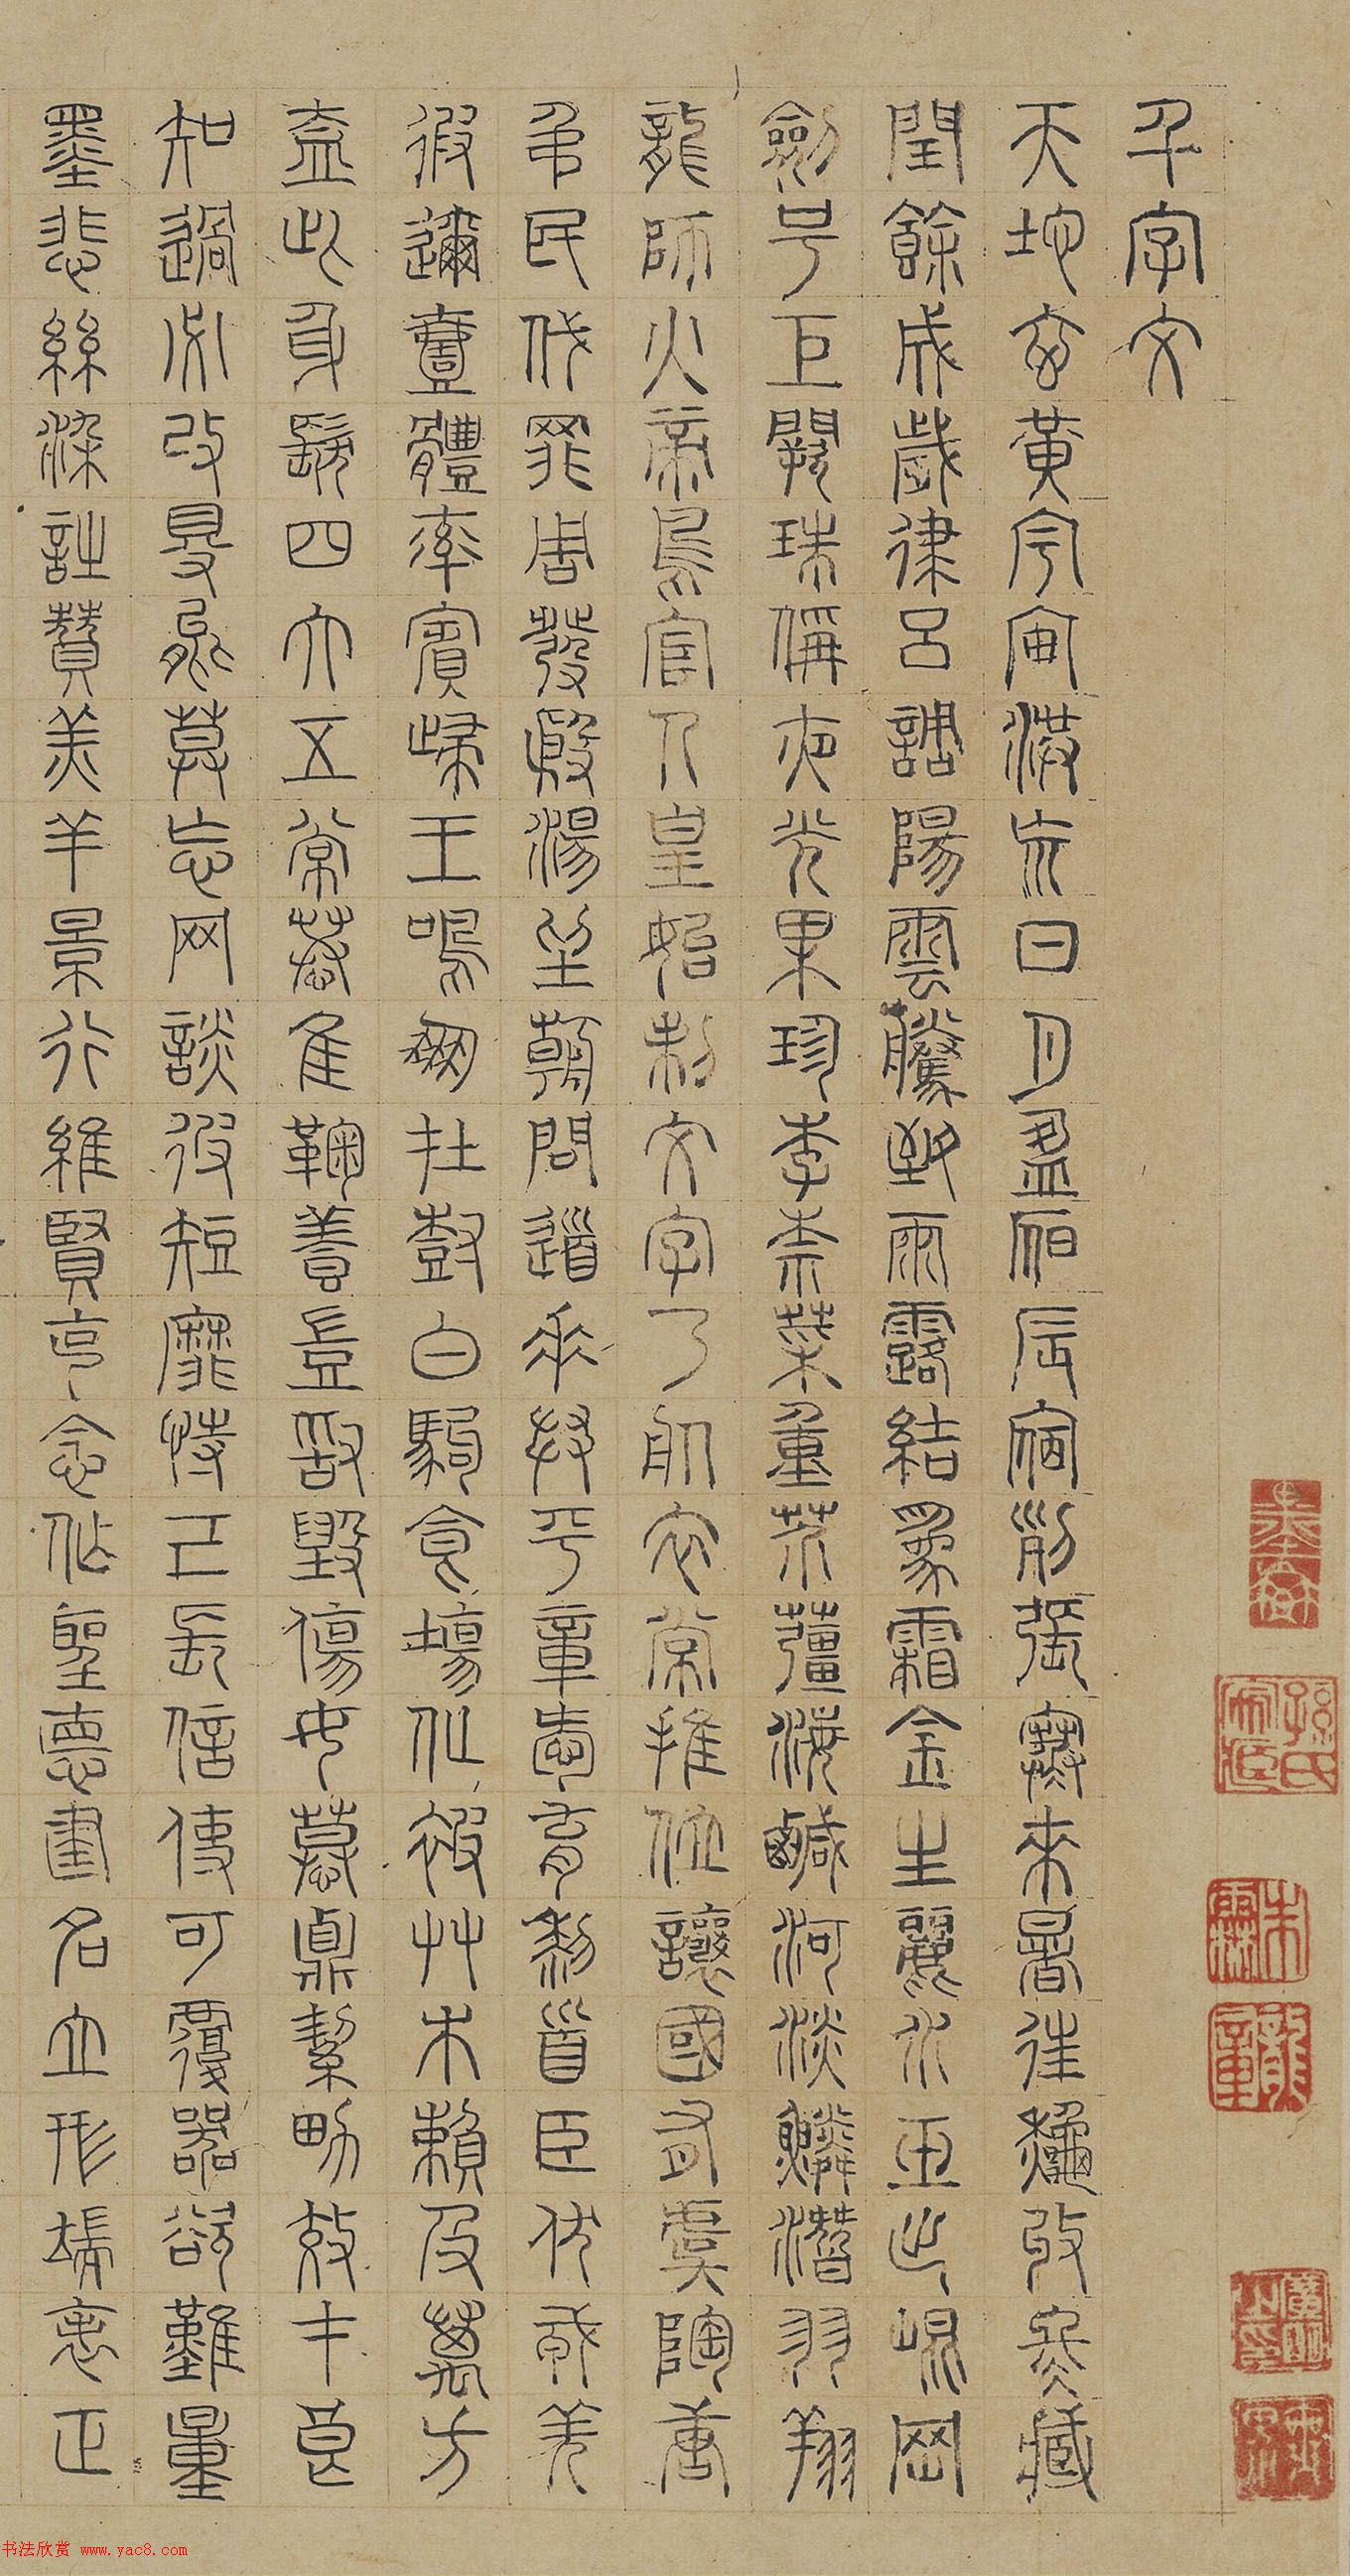 千字文
天地玄黃宇宙洪荒日月盈昃辰宿列張寒來暑往秋收冬藏
閏餘成歲律呂調陽雲騰致雨露結為霜金生麗水玉出崐岡
劍号巨闕珠稱夜光果珍李柰菜重芥薑海鹹河淡鱗潛羽翔
龍師火帝鳥官人皇始制文字乃服衣常推位讓國有虞陶唐
弔民伐罪周發殷湯坐朝問道垂拱平章愛育黎首臣伏戎羌
遐邇壹體率賓歸王鳴鳳在樹白駒食場化被艸木賴及萬方
蓋此身髮四大五常恭惟鞠養豈敢毀傷女慕貞絜男效才良
知過必改得能莫忘罔談彼短靡恃己長信使可覆器欲難量
墨悲絲染詩贊羔羊景行維賢克念作聖德建名立形端表正
书法欣赏 www.yac8.com